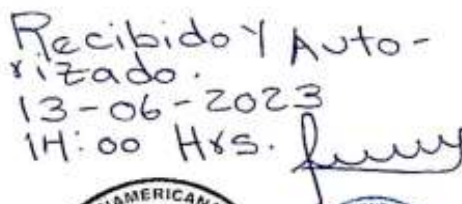 Recibido Y Auto-
rizado.
13-06-2023
14:00 Hrs.